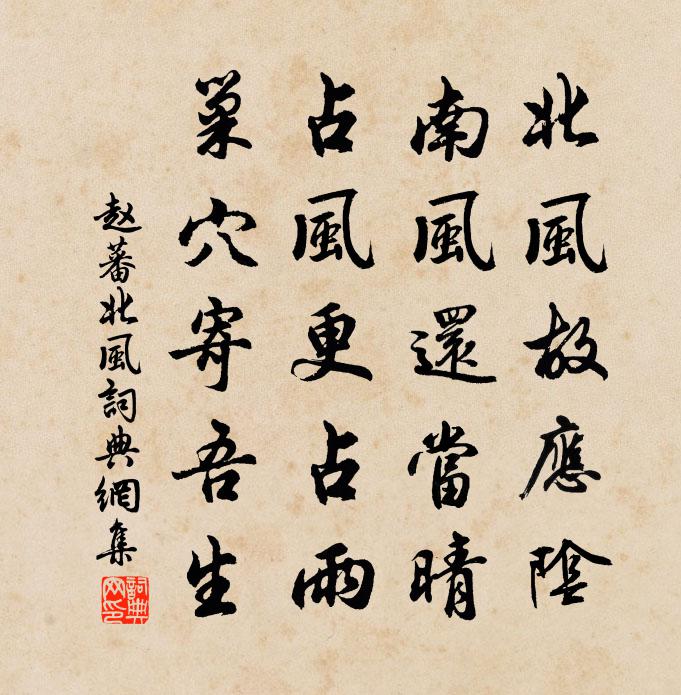 北風故應陰
南風還當晴
占風更占雨
巢穴寄吾生
赵蕃北風詞典網集
詞典網印